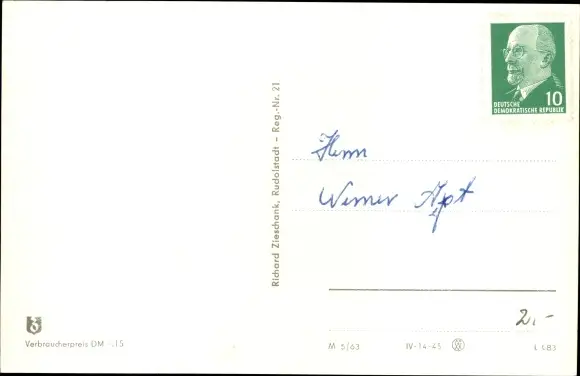 10
DEUTSCHE
DEMOKRATISCHE REPUBLIK
Richard Zieschank, Rudolstadt – Reg.-Nr. 21
Herrn
Werner Apt
2,-
Verbraucherpreis DM -,15
M 5/63 IV-14-45